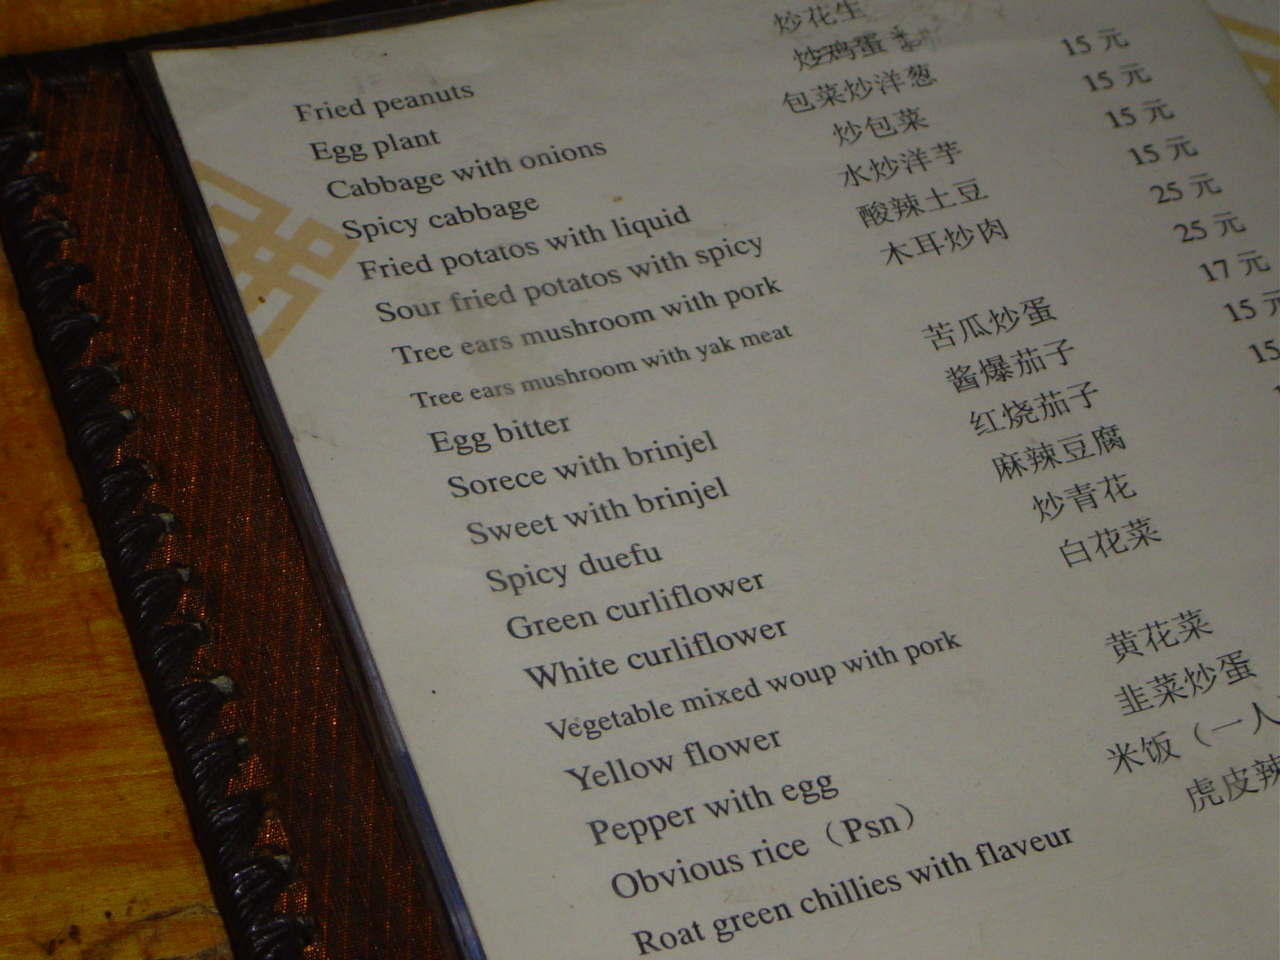 Fried peanuts 炒花生
Egg plant 炒鸡蛋
Cabbage with onions 包菜炒洋葱 15 元
Spicy cabbage 炒包菜 15 元
Fried potatos with liquid 水炒洋芋 15 元
Sour fried potatos with spicy 酸辣土豆 15 元
Tree ears mushroom with pork 木耳炒肉 25 元
Tree ears mushroom with yak meat 25 元
Egg bitter 苦瓜炒蛋 17 元
Sorece with brinjel 酱爆茄子 15 元
Sweet with brinjel 红烧茄子 15
Spicy duefu 麻辣豆腐
Green curliflower 炒青花
White curliflower 白花菜
Vegetable mixed woup with pork
Yellow flower 黄花菜
Pepper with egg 韭菜炒蛋
Obvious rice（Psn） 米饭（一人
Roat green chillies with flaveur 虎皮辣